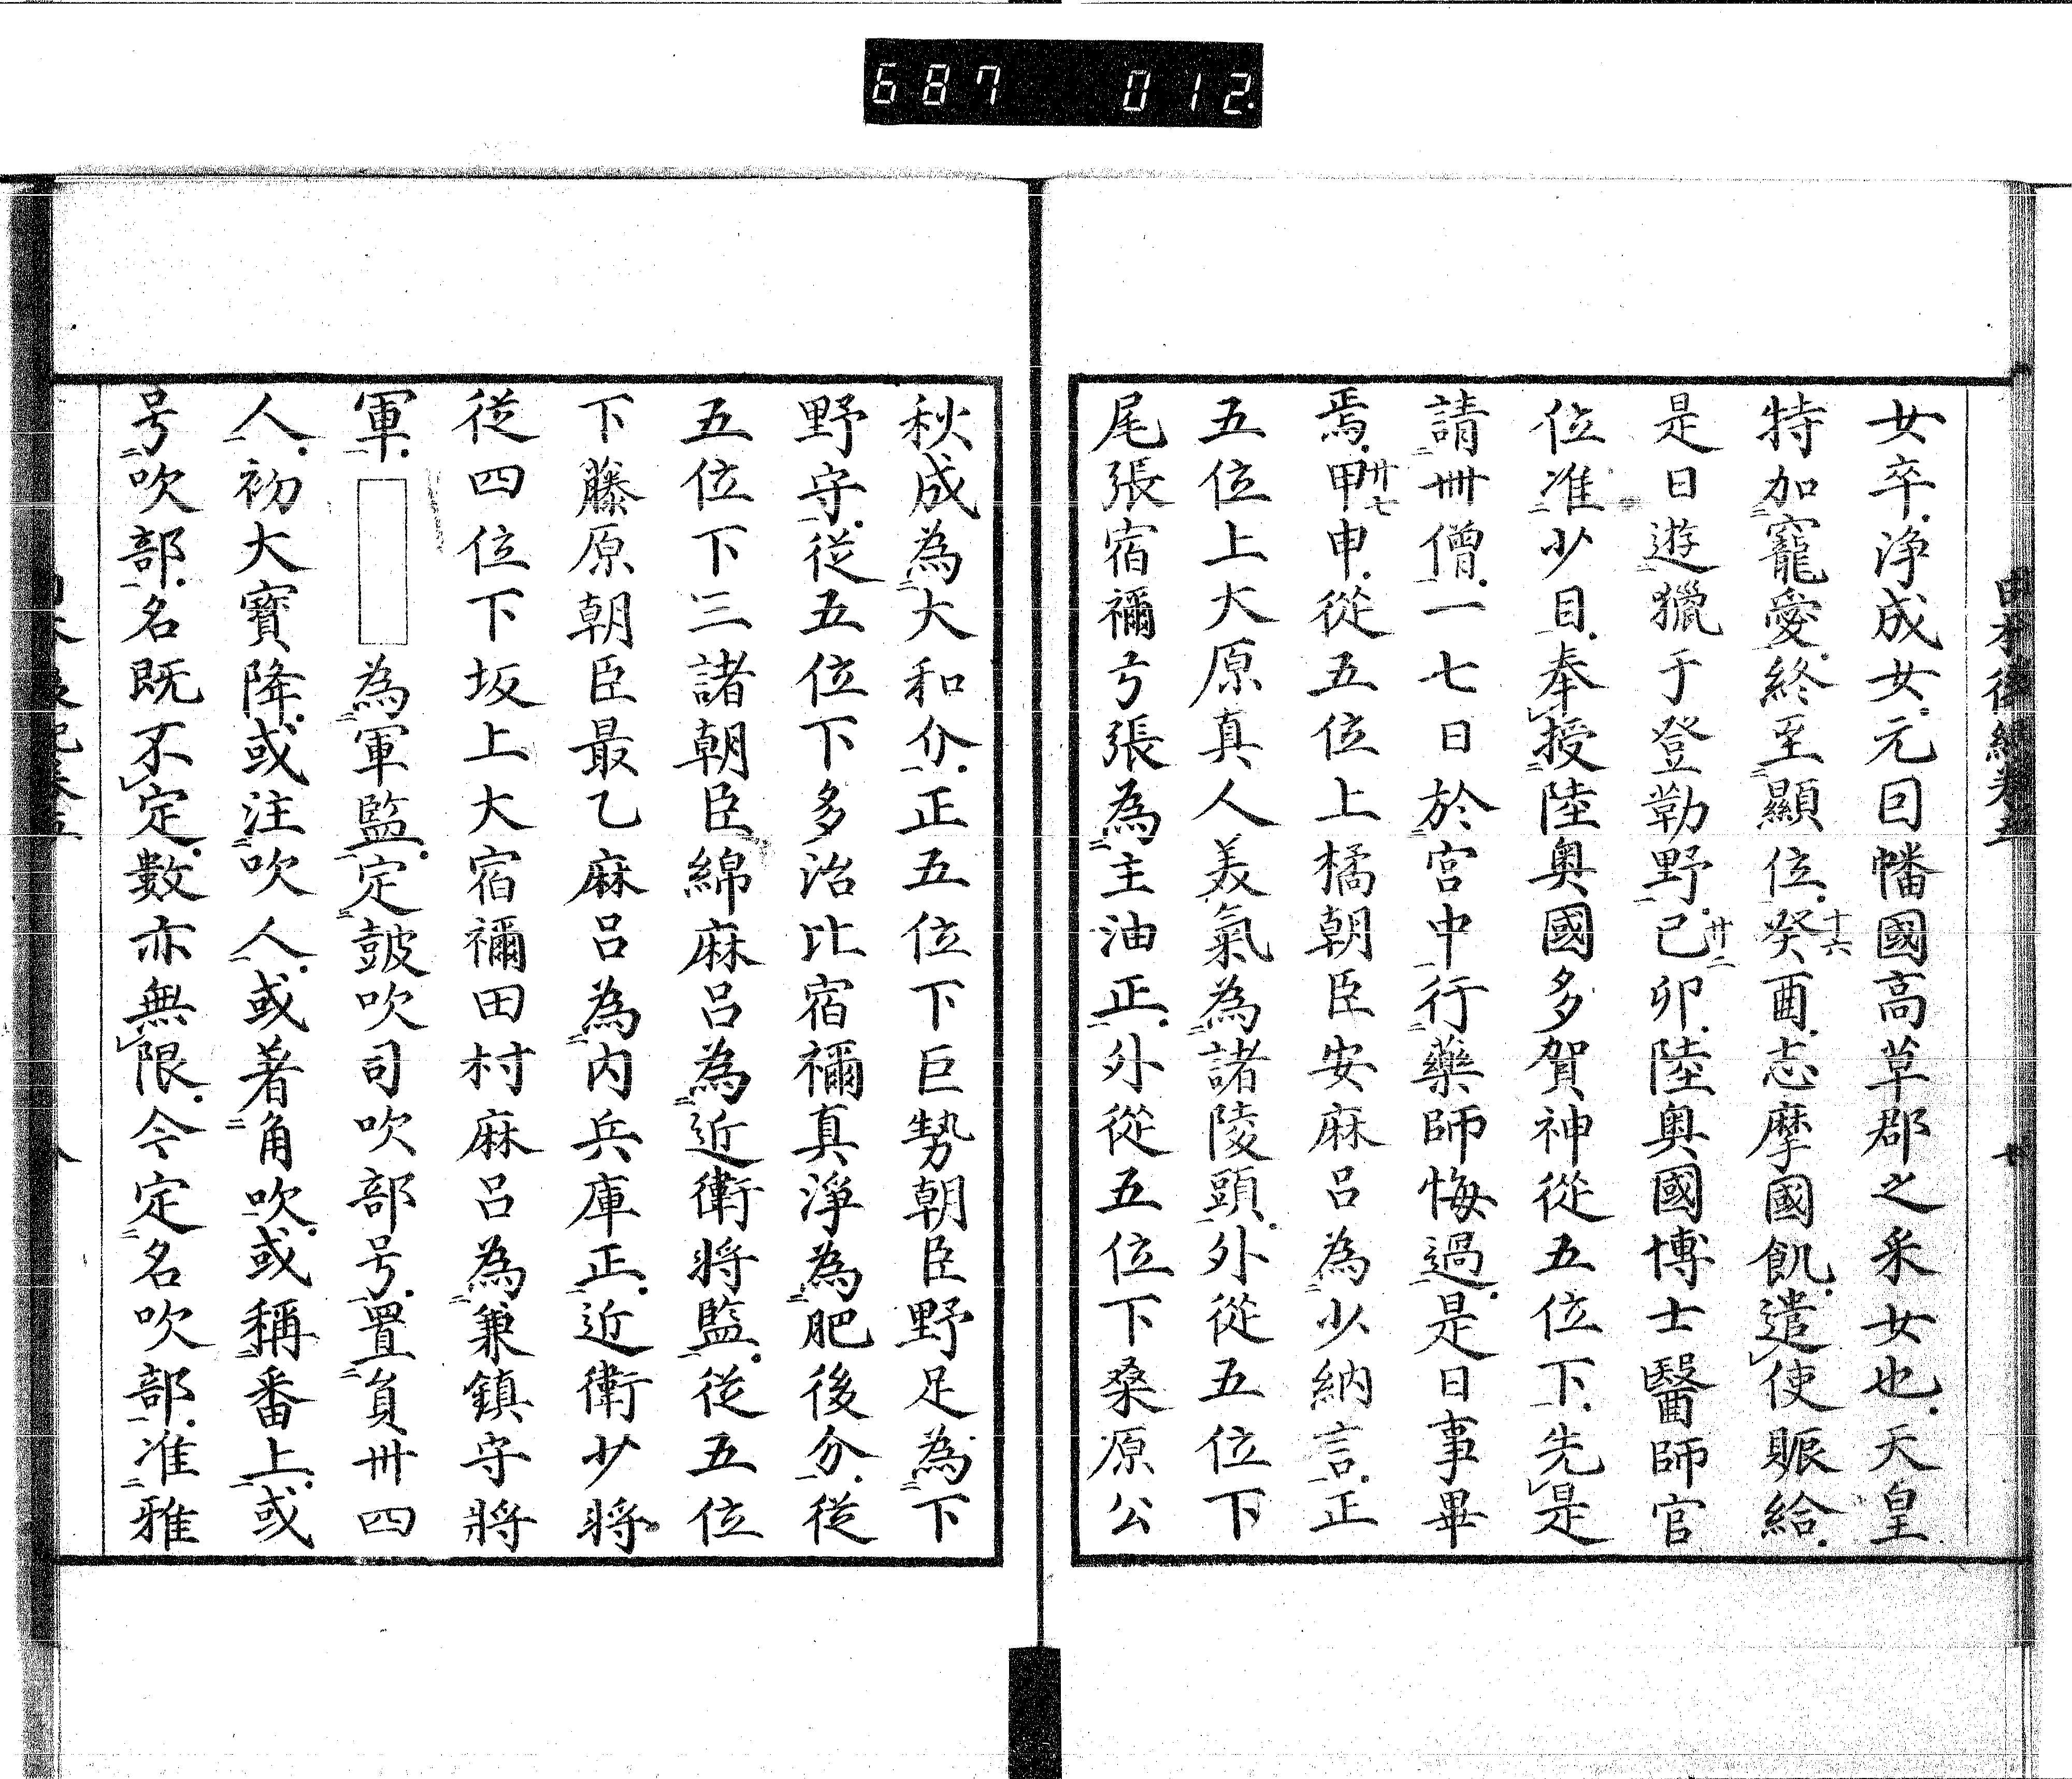 687 012
女卒浄成女元曰幡國高草郡之釆女也天皇
特加寵愛終至顯位癸酉志摩國飢遣使賑給
十六
是日遊獵于登勒野己卯陸奥國博士醫師官
廿二
位准少目奉授陸奥國多賀神從五位下先是
請卌僧一七日於宮中行藥師悔過是日事畢
焉甲申從五位上橘朝臣安麻呂為少納言正
廿七
五位上大原真人美氣為諸陵頭外從五位下
尾張宿禰弓張為主油正外從五位下桑原公
秋成為大和介正五位下巨勢朝臣野足為下
野守從五位下多治比宿禰真淨為肥後介從
五位下三諸朝臣綿麻呂為近衛將監從五位
下藤原朝臣最乙麻呂為内兵庫正近衛少將
從四位下坂上大宿禰田村麻呂為兼鎮守將
軍 為軍監定鼓吹司吹部号置負卌四
人初大寳降或注吹人或著角吹或稱番上或
号吹部名既不定數亦無限今定名吹部准雅